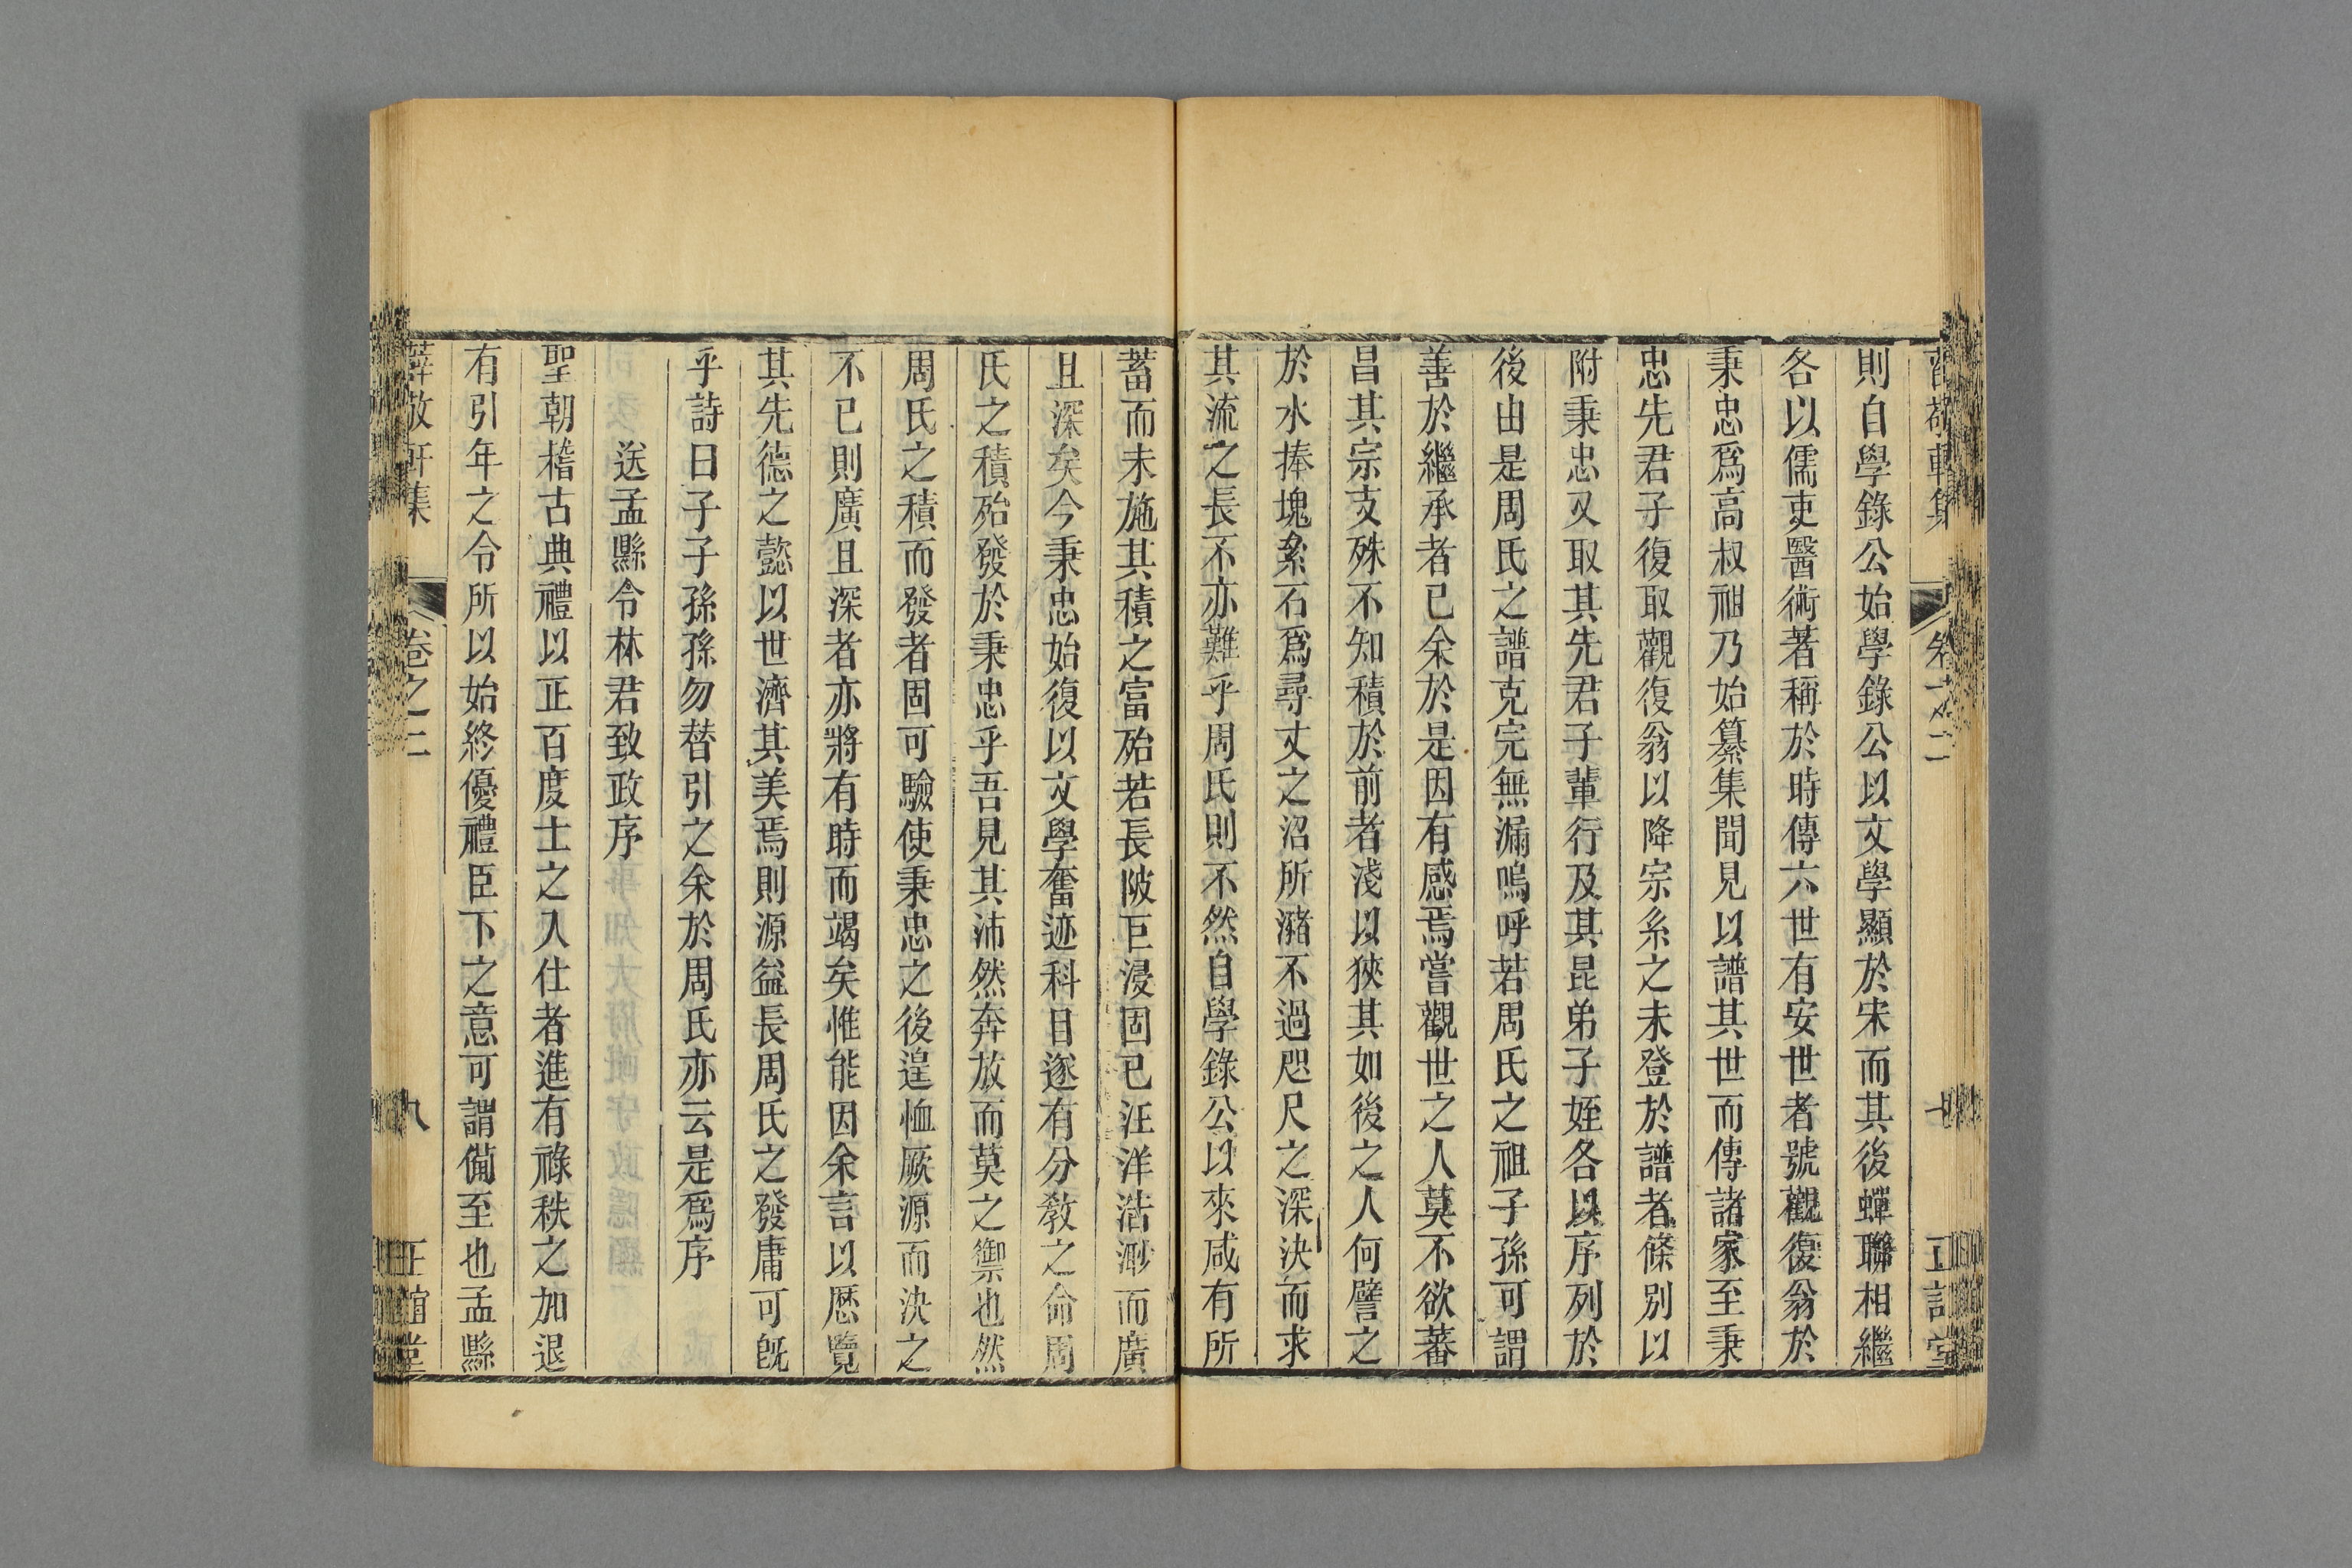 則自學錄公始學錄公以文學顯於宋而其後蟬聯相繼
各以儒吏醫術著稱於時傳六世有安世者號觀復翁於
秉忠爲高叔祖乃始纂集聞見以譜其世而傳諸家至秉
忠先君子復取觀復翁以降宗系之未登於譜者條別以
附秉忠又取其先君子輩行及其昆弟子姪各以序列於
後由是周氏之譜克完無漏嗚呼若周氏之祖子孫可謂
善於繼承者已余於是因有感焉嘗觀世之人莫不欲蕃
昌其宗支殊不知積於前者淺以狹其如後之人何譬之
於水捧塊絫石爲尋丈之沼所瀦不過咫尺之深決而求
其流之長不亦難乎周氏則不然自學錄公以來咸有所
蓄而未施其積之富殆若長陂巨浸固已汪洋浩渺而廣
且深矣今秉忠始復以文學奮迹科目遂有分教之命周
氏之積殆發於秉忠乎吾見其沛然奔放而莫之禦也然
周氏之積而發者固可驗使秉忠之後遑恤厥源而決之
不已則廣且深者亦將有時而竭矣惟能因余言以歷覽
其先德之懿以世濟其美焉則源益長周氏之發庸可旣
乎詩曰子子孫孫勿替引之余於周氏亦云是爲序
送孟縣令林君致政序
聖朝稽古典禮以正百度士之入仕者進有祿秩之加退
有引年之令所以始終優禮臣下之意可謂備至也孟縣
薛敬軒集
卷之二
九
正誼堂